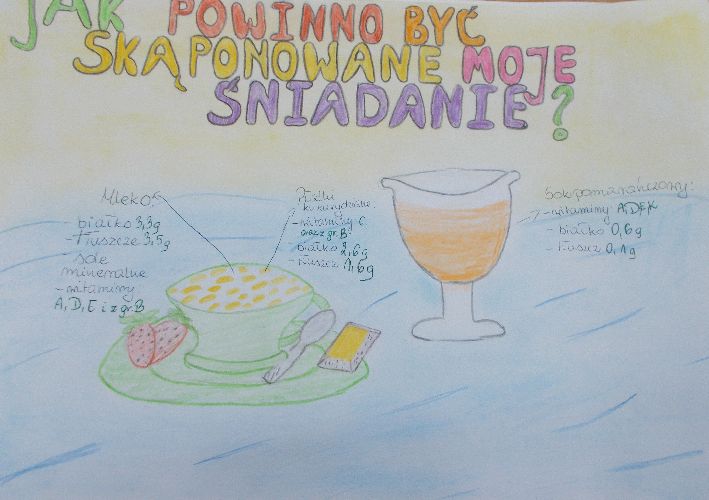 JAK POWINNO BYĆ
SKĄPONOWANE MOJE
ŚNIADANIE?
Mleko
- białko 3,3g
- tłuszcze 3,5g
- sole
mineralne
- witaminy
A, D, E i z gr. B
Płatki
kukurydziane
- witaminy C
oraz z gr. B
- białko
- tłuszcz
Sok pomarańczowy:
- witaminy A, D, E, K
- białko 0,6g
- tłuszcz 0,1g